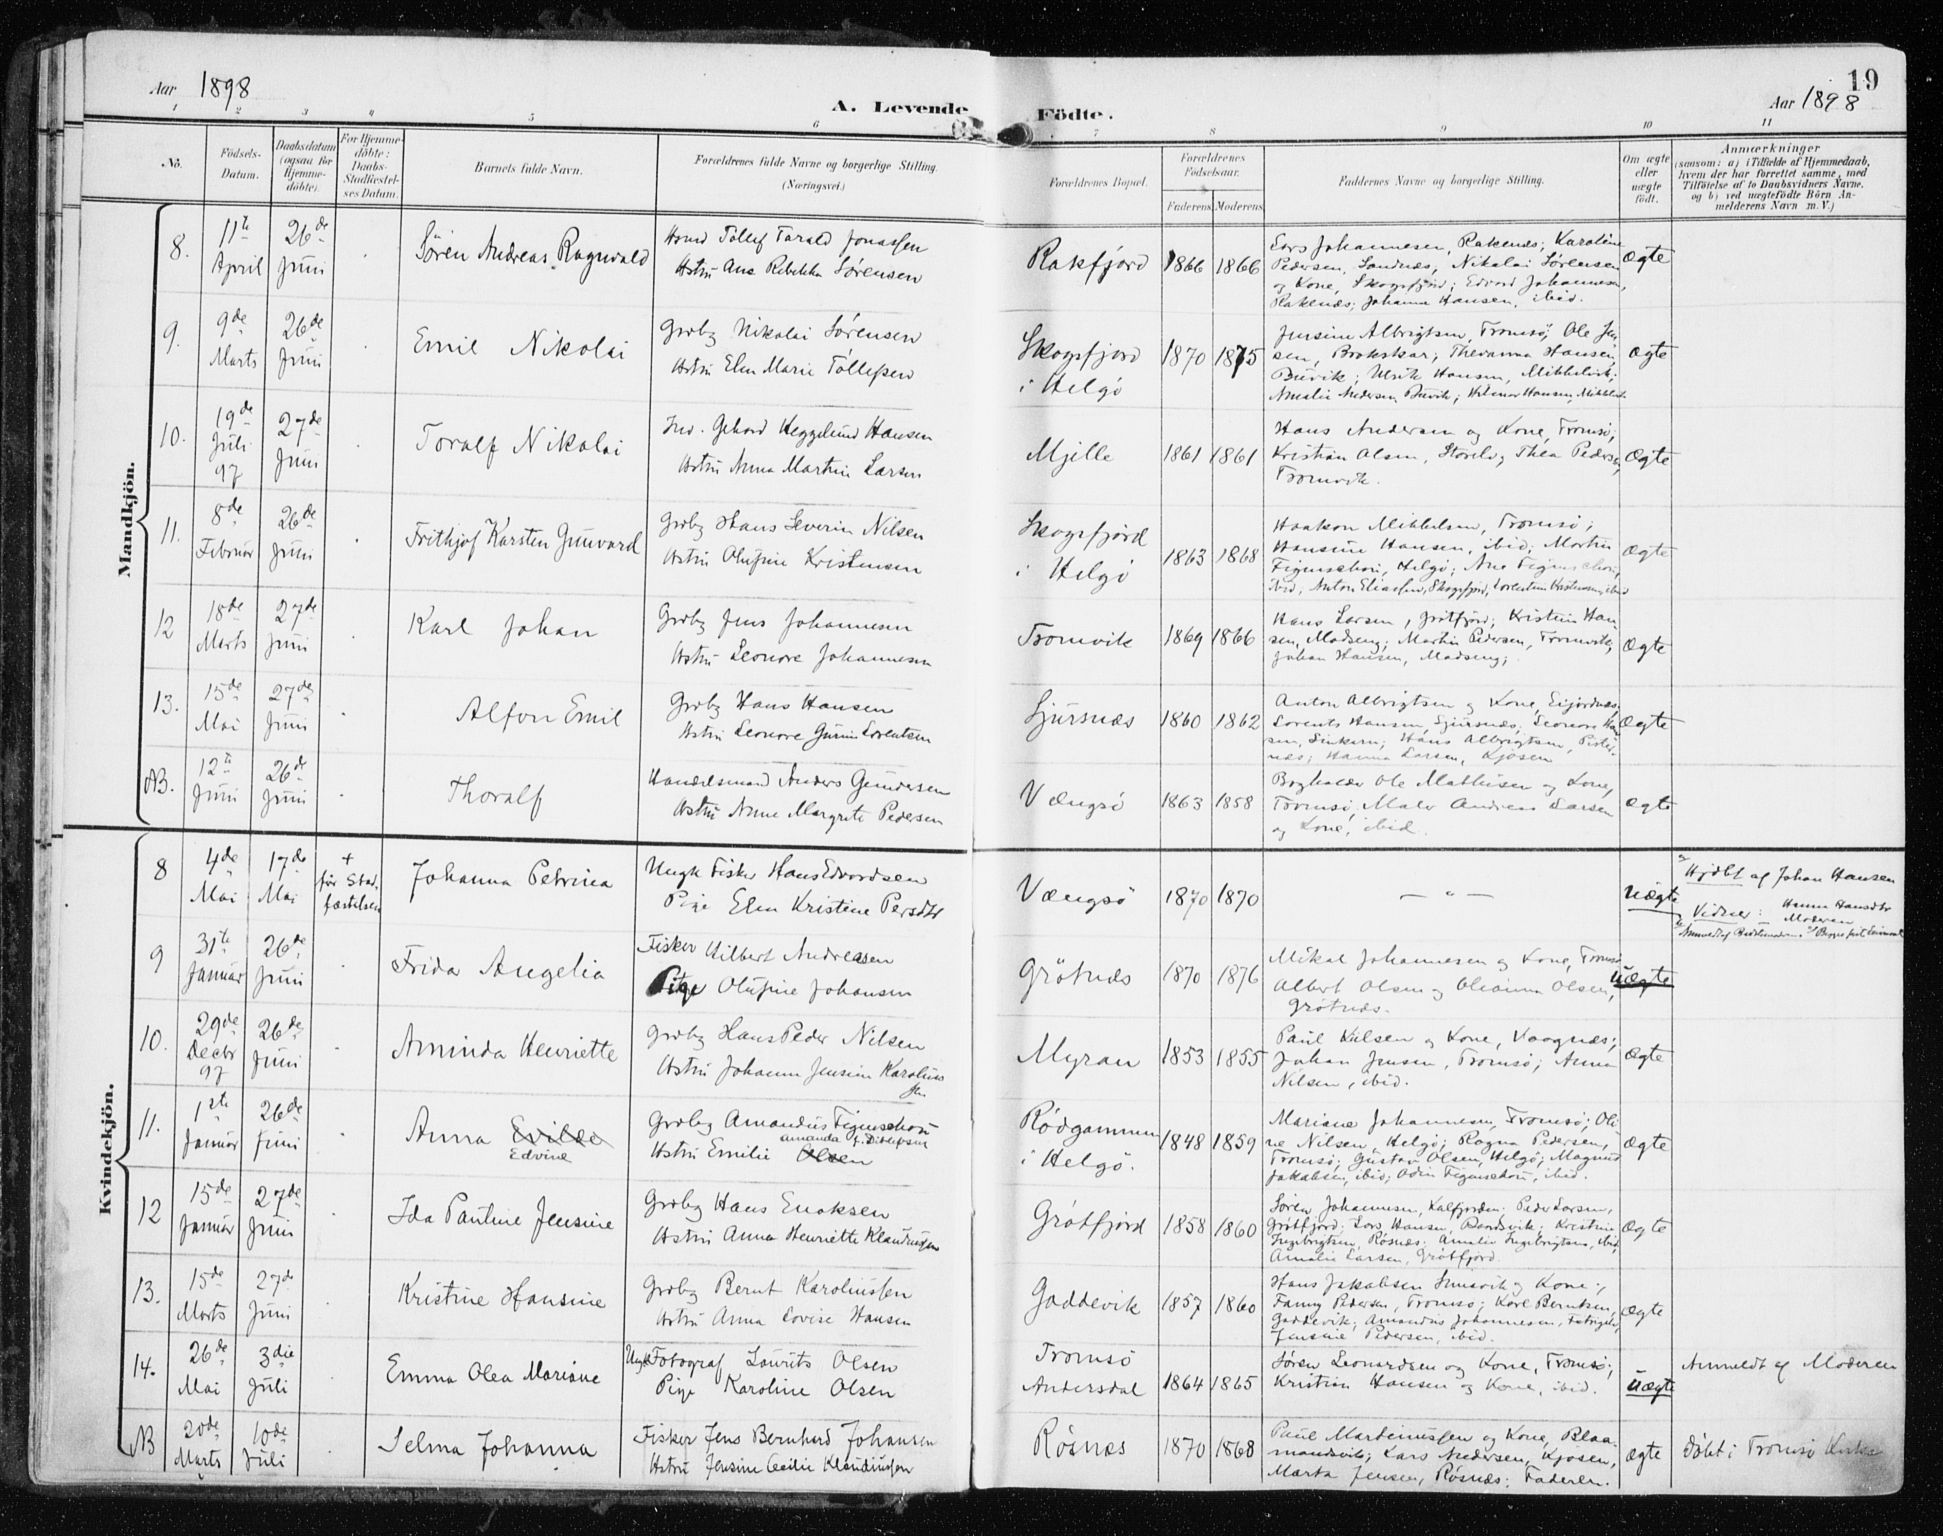 Aar 1898
A. Levende Födte.
19
Aar 1898
1 2 3 4 5 6 7 8 9 10 11
No.
Födsels-Datum.
Daabsdatum (ogsaa for Hjemme-döbte).
For Hjemme-döbte: Daabs-Stadfæstel-ses Datum.
Barnets fulde Navn.
Forældrenes fulde Navne og borgerlige Stilling. (Næringsvei.)
Forældrenes Bopæl.
Forældrenes Födselsaar.
Faderens Moderens
Faddernes Navne og borgerlige Stilling.
Om ægte eller uægte födt.
Anmærkninger
(saasom: a) i Tilfælde af Hjemmedaab,
hvem der har forrettet samme, med
Tilföielse af to Daabsvidners Navne,
og b) ved uægtefödte Börn An-
melderens Navn m. V.)
Mandkjön.
8. 11te April 26de Juni Søren Andreas Ragnvald
Tollef Tarald Jonassen
Hstru Ane Rebekka Sørensen
Rakfjord 1866 1866
Lars Johannesen, Rakenæs; Karoline
Pedersen, Sandnæs, Nikolai Sørensen
og Kone, Skogsfjord; Edvard Johannesen,
Rakenæs; Johanna Hansen, ibid.
ægte
9. 9de Marts 26de Juni Emil Nikolai
Grdbg Nikolai Sørensen
Hstru Elen Marie Tollefsen
Skogsfjord i Helgø 1870 1875
Jensine Albrigtsen, Tromsø; Ole Jen-
sen, Hansen,
Buvik; Ulrik Hansen,
Amalie Andersen, Buvik; Hilmar Hansen,
ægte
10. 19de Juli 97 27de Juni Toralf Nikolai
Ind. Gehard Heggelund Hansen
Hstru Anna Martin Larsen
Mjelle 1861 1861
Hans Andersen og Kone, Tromsø;
Kristian Olsen, Thea Pedersen,
Tromvik.
ægte
11. 8de Februar 26de Juni Frithjof Karsten Gunvard
Grdbg Hans Severin Nilsen
Hstru Olufine Kristensen
Skogsfjord i Helgø 1863 1868
Haakon Mikkelsen, Tromsø;
Hansine Hansen, ibid; Martin
Figenschou, Helgø; Ane Figenschou,
ibid; Anton Eliassen, Skogsfjord; Lorentine Kristensen, ibid
ægte
12 18de Marts 27de Juni Karl Johan
Grdbg Jens Johannesen
Hstru Leonore Johannesen
Tromvik 1869 1866
Hans Larsen, Grøtfjord; Kristein Han-
sen, Madseng; Martin Pedersen, Tromvik;
Johan Hansen, Madseng;
ægte
13. 15de Mai 27de Juni Alfon Emil
Grdbg Hans Hansen
Hstru Leonore Lorentsen
Sjursnæs 1860 1862
Anton Albrigtsen og Kone,
Lorents Hansen, Sjursnæs; Leonore Han-
sen, Hans Albrigtsen,
Hanna Larsen, Kjosen
ægte
NB. 12te Juni 26de Juni Thoralf
Handelsmand Anders Gundersen
Hstru Anne Margrete Pedersen
Vængsø 1863 1858
Bogholder Ole Mathisen og Kone,
Tromsø, Maler Andreas Larsen
og Kone, ibid.
ægte
Kvindekjön.
8 4de Mai 17de Mai + før Stad-fæstelsen Johanna Petrina
Ungk Fisker Hans Edvardsen
Pige Elen Kristine Persdtr
Vængsø 1870 1870
— " —
uægte
Hjdbt af Johan Hansen
Vidner: Hanna Hansdtr
Moderen
9 31te Januar 26de Juni Frida Angelia
Fisker Hilbert Andreasen
Pige Olufine Johansen
Grötnæs 1870 1876
Mikal Johannesen og Kone, Tromsø
Albert Olsen og Oleanna Olsen,
Grötnæs.
uægte
10. 29de Decbr 97 26de Juni Aminda Henriette
Grdbg Hans Peder Nilsen
Hstru Johanna Jensine Karolius
sen
Myran 1853 1855
Paul Kielsen og Kone, Kaagnæs;
Johan Jensen, Tromsø; Anna
Nilsen, ibid.
ægte
11. 1ste Januar 26de Juni Anna Edvine
Grdbg Amandus Figenschou
Amanda f. Ditlefsen
Hstru Emilie Olsen
Rödgammen i Helgø. 1848 1859
Mariane Johannesen, Tromsø; Oli-
ne Nilsen, Helgø; Ragna Pedersen,
Tromsø; Gustav Olsen, Helgø; Magnus
Jakobsen, ibid; Odin Figenschou, ibid.
ægte
12 15de Januar 27de Juni Ida Pauline Jensine
Grdbg Hans Enoksen
Hstru Anna Henriette Klaudiussen
Grötfjord 1858 1860
Søren Johannesen, Kalfjorden; Peder Larsen,
Grötfjord; Lars Hansen, Kristine
Ingebrigtsen, Røsnæs; Amalie Ingebrigtsen, ibid;
Amalie Larsen, Grötfjord.
ægte
13. 15de Marts 27de Juni Kristine Hansine
Grdbg Bernt Karoliussen
Hstru Anna Lovise Hansen
Gaddevik 1857 1860
Hans Jakobsen og Kone;
Fanny Pedersen, Tromsø; Karl Berntsen,
Gaddevik; Amandus Johannesen,
Jensine Pedersen, ibid.
ægte
14. 26de Mai 3die Juli Emma Olea Mariane
Ungk Fotograf Laurits Olsen
Pige Karoline Olsen
Tromsø
Andersdal 1864 1865
Søren Leonardsen og Kone, Tromsø;
Kristian Hansen og Kone, ibid.
uægte
Anmeldt af Moderen
NB 20de Marts 10de Juli Selma Johanna
Fisker Jens Bernhard Johansen
Hstru Jensine Cecilie Klaudiussen
Røsnæs 1870 1868
Paul Marteniussen og Kone, Blaa-
mandsvik; Lars Andersen, Kjosen,
Marta Jensen, Røsnæs; Faderen.
ægte
Døbt i Tromsø Kirke